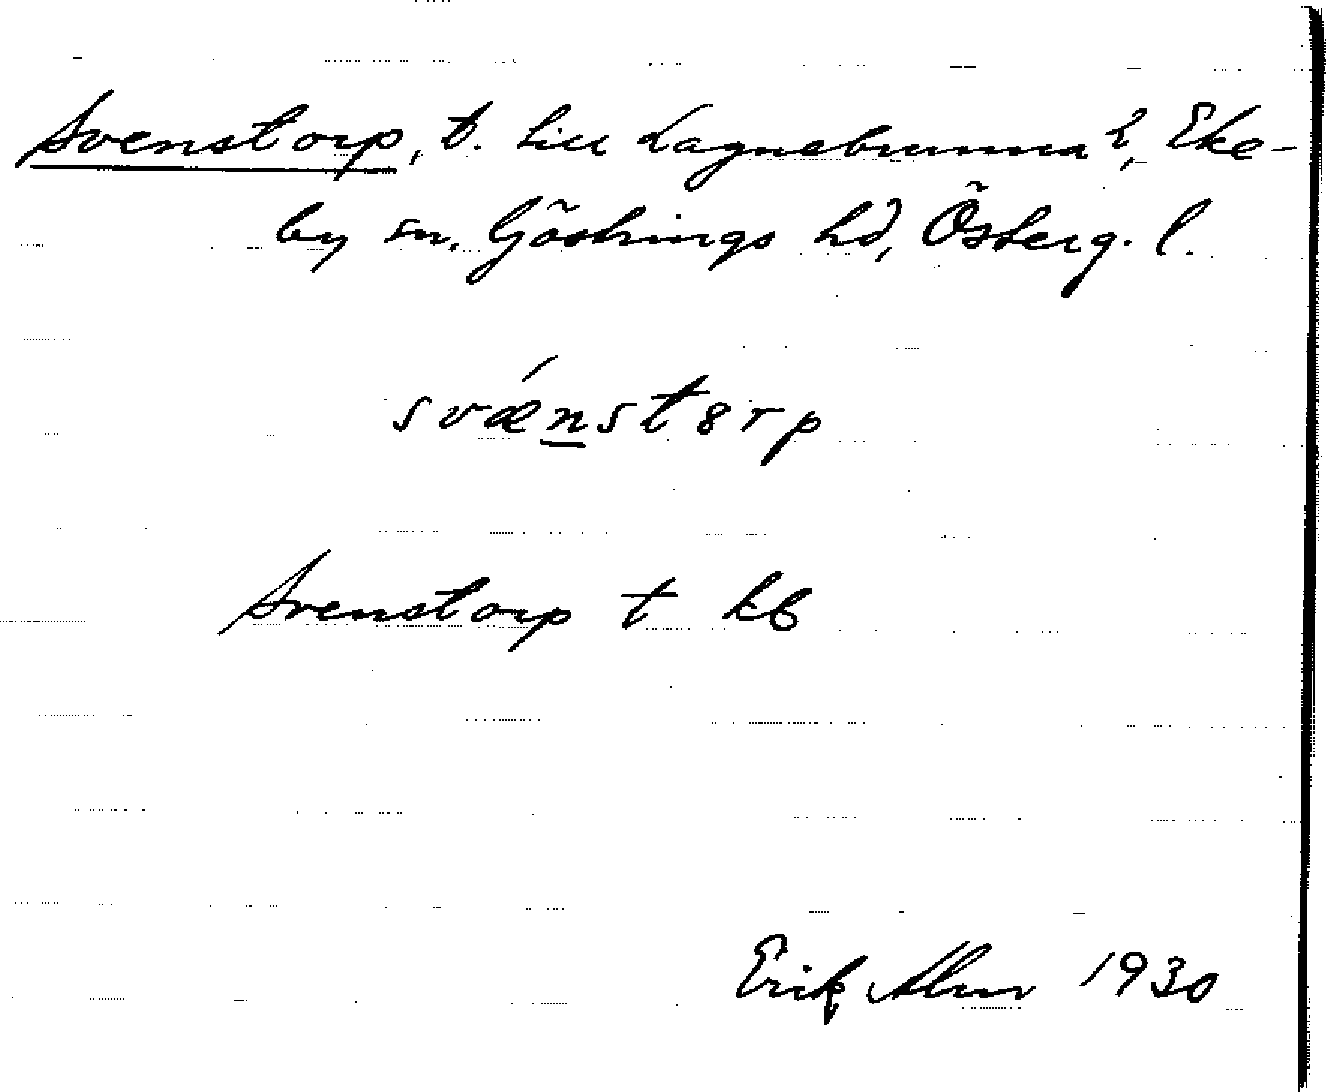 Svenstorp, t. till Lagnebrunna h, Eke-
by sn, Göstrings hd, Österg. l.
svǽn̲st8rp
Svenstorp t kb
Erik Abr 1930